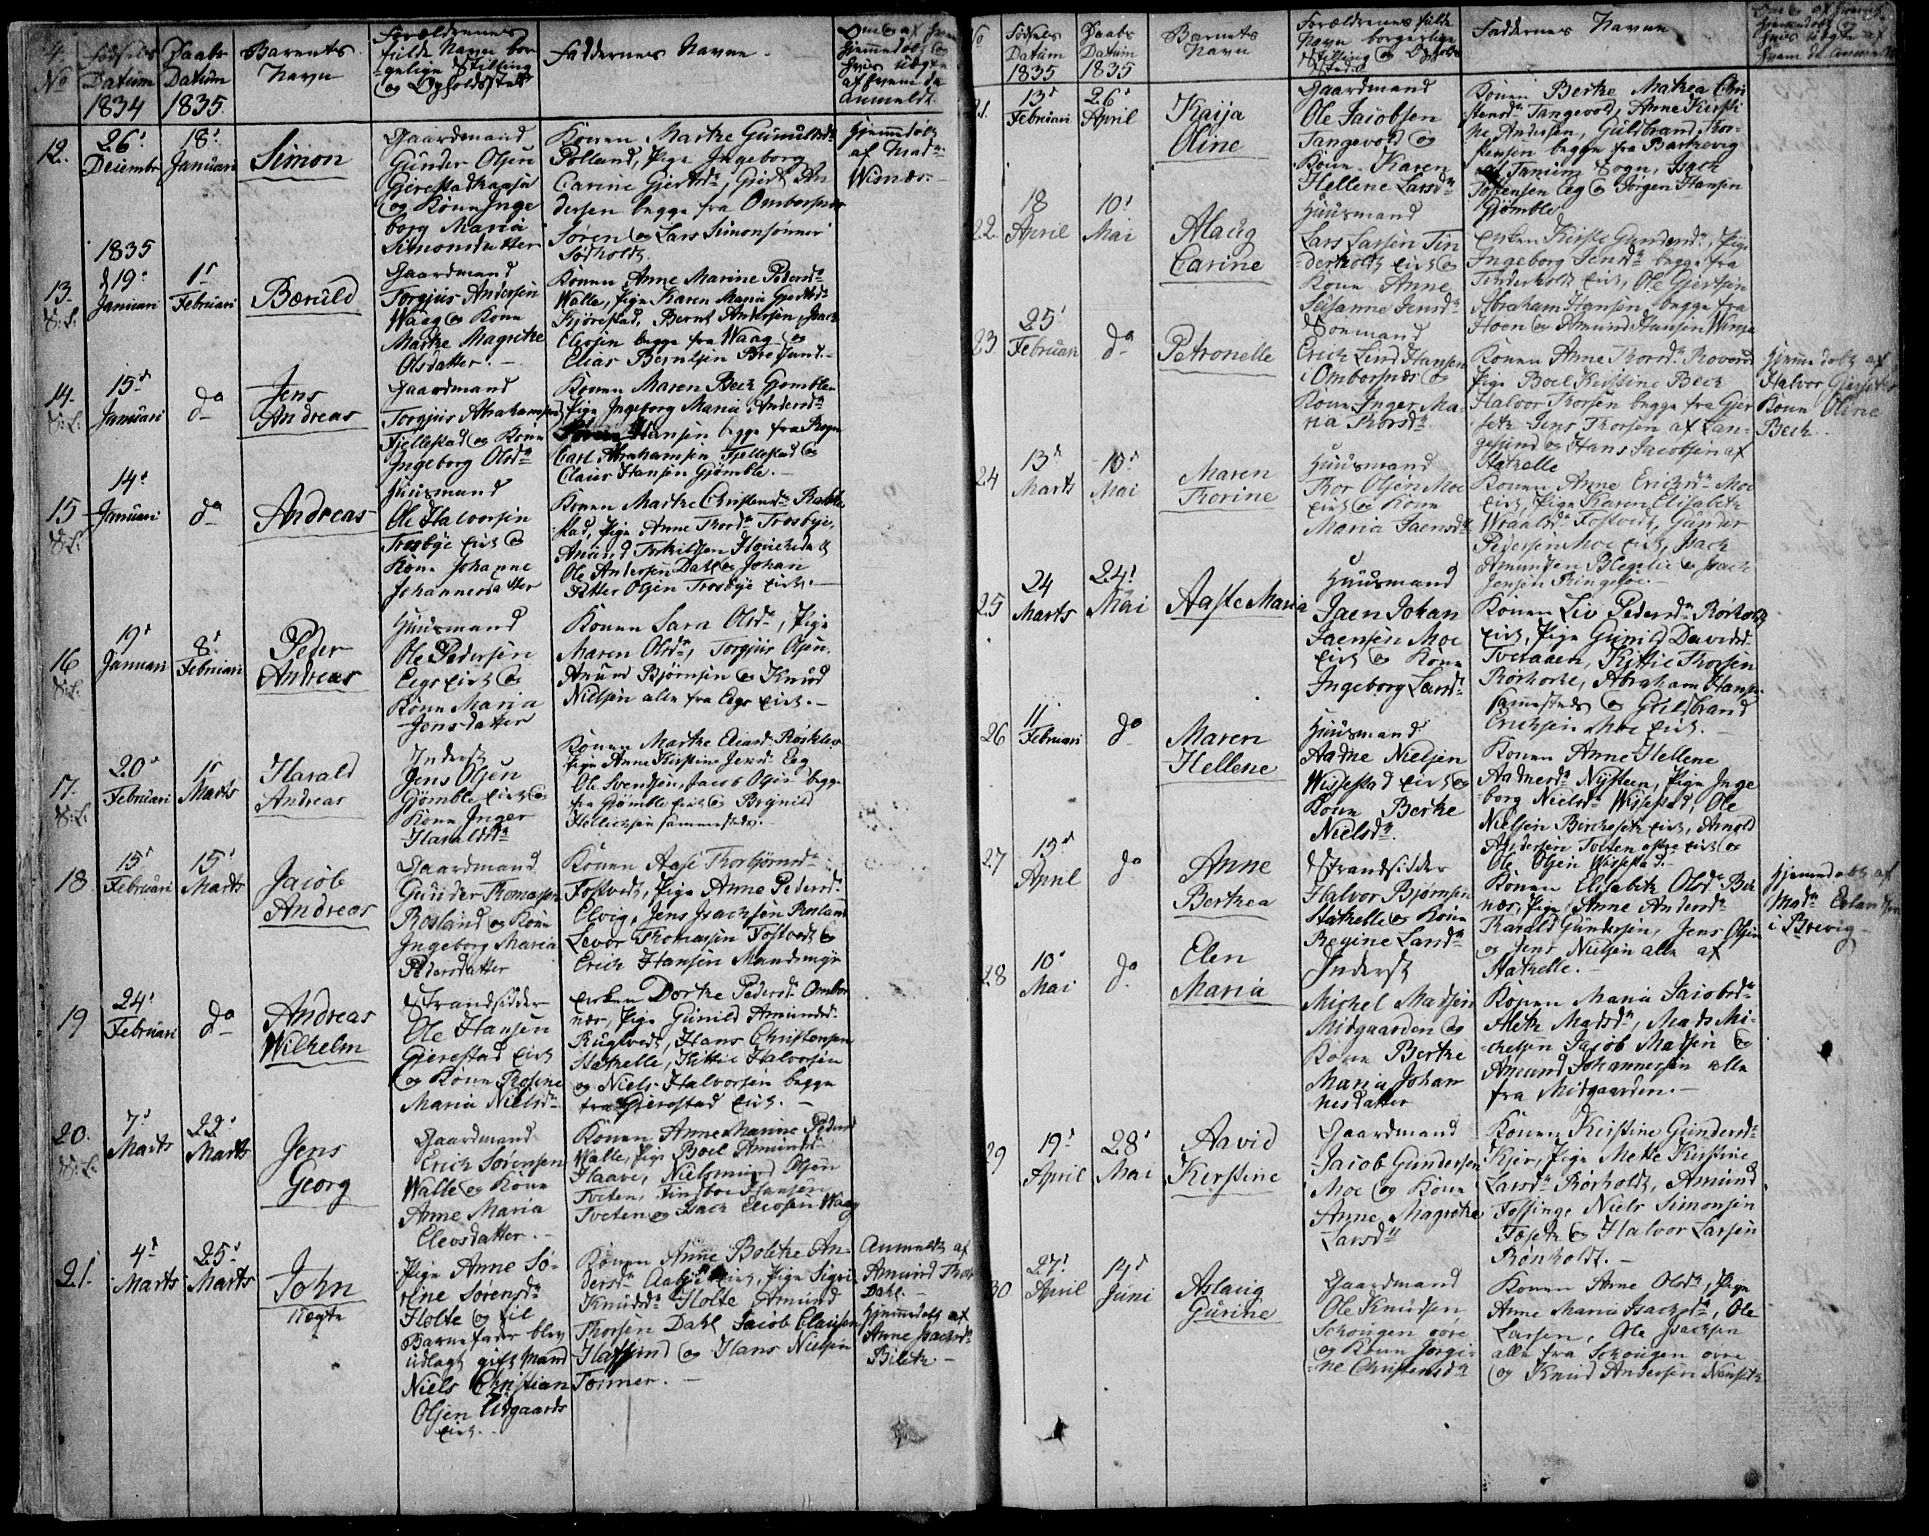 4
No
Fødsels
Datum
1834
Daabs
Datum
1835.
Barnets
Navn
Forældrenes
fulde Navn bor
gelige Stilling
og Opholdssted
Faddernes Navn
Om B. af hvem
hjemmedøbt og
hvis uægte
af hvem da
Anmeldt
12.
26'
Decembr
18'
Januari
Simon
Gaardmand
Gunder Olsen
Gierestadhaugen
og Kone Inge
borg Maria
Simonsdatter
Konen Marthe Gunulfsdr
Pige Ingeborg
Carine Giertsdr, Giert An
dersen begge fra Ombersnæs
Søren og Lars Simonsønner
Sødholt.
hjemmedøbt
af Madm
Wisnæs
1835
13.
19'
Januari
1'
Februari
Bæruld
Gaardmand
Torgjus Andersen
Waag og Kone
Marthe Magrethe
Olsdatter.
Konen Anne Marine Pedersdr
Walle, Pige Karen Maria Giertsdr
Kjørestad, Bernt Andersen, Isach
Eliesen begge fra Waag og
Elias Berntsen Brosund.
14.
15'
Januari
do
Jens
Andreas
Gaardmand
Torgjus Abrahamsen
Fjellestad og Kone
Ingeborg Olsdr
Konen Maren Bech Gjømble
Pige Ingeborg Maria Andersdr
Hansen begge fra Rogn
Carl Abrahamsen Fjellestad og
Claus Hansen Gjømble.
15
14'
Januari
do
Andreas
Huusmand
Ole Halvorsen
Trosbye Eiet og
Kone Johanne
Johannesdatter
Konen Marthe Christensdr Rakke
stad, Pige Anne Thordr Trosbye,
Amund Terkildsen
Ole Andersen Dahl og Johan
Petter Olsen Trosbye Eiet.
16
19'
Januari
8'
Februari
Peder
Andreas
Huusmand
Ole Pedersen
Eegs Eiet og
Kone Maria
Jensdatter
Konen Sara Olsdr, Pige
Maren Olsdr, Torgjus Olsen,
Anund Bjørnsen og Knud
Nielsen alle fra Eegs Eiet.
17.
20'
Februari
1'
Marts
Harald
Andreas
Inderst
Jens Olsen
Gjømble Eiet og
Kone Inger
Haraldsdr
Konen Marthe
Pige Anne Kirstine Jensdr Eeg
Ole Svendsen, Jacob Olsen begge
fra Gjømble Eiet og
sammesteds.
18
15'
Februari
15'
Marts
Jacob
Andreas
Gaardmand
Gunder Thomassen
Rosland og Kone
Ingeborg Maria
Pedersdatter
Konen Aase Thorbjørnsdr
Tostvedt, Pige Anne Pedersdr
Elvig, Jens Isachsen Rosland
Levor Thomassen Tostvedt og
Erich Hansen
19
24'
Februari
do
Andreas
Wilhelm
Strandsidder
Ole Hansen
Gierestad Eiet
og Kone Rosine
Maria Nielsdr
Enken Dorthe Pedersdr Ombor
næs, Pige Gunild Amundsdr
Rugtvedt, Hans Christensen
Stathelle, Kittil Halvorsen
og Niels Halvorsen begge
fra Gierestad Eiet.
20.
7'
Marts
22'
Marts
Jens
Georg
Gaardmand
Erich Sørensen
Walle og Kone
Anne Maria
Eleosdatter.
Konen Anne Marine Peders
Walle, Pige Boel Amundsdr
Haave, Olsen
Tveten, Hansen
Tveten og Isach Eliesen Waag
21.
4'
Marts
25'
Marts
John
uægte
Pige Anne Sø-
rine Sørensdr
Holte og til
Barnefader blev
udlagt gift Mand
Niels Christian
Olsen Udgaards
Eiet.
Konen Anne Bolethe An-
dersdr Aabye Eiet, Pige Sigri
Knudsdr Holte Amund
Thorsen Dahl, Jacob Clausen
og Hans Nielsen
Tormer.
Anmeldt af
Amund Thor
Dahl.
hjemmedøbt af
Anne Isachsdr
No
Fødsels
Datum
1835
Daabs
Datum
1835
Barnets
Navn
Forældrenes fulde
Navn borgerlige
Stilling og Opholds
Sted
Faddernes Navn
21.
13'
Februari
26'
April
Kaija
Oline
Gaardmand
Ole Jacobsen
Tangevold og
Kone Karen
Hellene Larsdr
Konen Berthe Mathea Chri
stensdr Tangevold, Anne Kirsti
ne Andersen, Guldbrand Thor-
stensen begge fra Barkevig
og Tanum Sogn, Isach
Tostensen Eeg og Jørgen Hansen
Gjømble
22.
18
April
10'
Mai
Alaug
Carine
Huusmand
Lars Larsen Tin
derholt Eiet og
Kone Anne
Susanne Jensdr
Enken Kirsti Gundersdr, Pige
Ingeborg Jensdr begge fra
Tinderholt Eiet, Ole Giertsen
Abraham Hansen begge fra
Hoen og Amund Hansen
23
25'
Februari
do
Petronelle
Soemand
Erich Lind Hansen
i Ombersnæs og
Kone Inger Ma-
ria Thorsdr
Konen Anne Thorsdr
Pige Boel Kirstine Bech
Halvor Thorsen begge fra Gier
seth Jens Thorsen af Lan-
gesund og Hans Jacobsen af
Stathelle
hjemmedøbt af
Halvor Giersets
Kone Oline
Bech
24
13'
Marts
10'
Mai
Maren
Thorine
Huusmand
Thor Olsen Moe
Eiet og Kone
Maria Jaensdr
Konen Anne Erichsdr Moe
Eiet, Pige Karen Elisabeth
Wraalsdr Tostvedt, Gunder
Pedersen Moe Eiet, Isach
Amundsen Blegelie og Isach
Jensen Ringesoe.
25
24
Marts
24'
Mai
Aaste Maria
Huusmand
Jaen Johan
Jaensen Moe
Eiet og Kone
Ingeborg Larsdr
Konen Liv Pedersdr Rørholt
Eiet, Pige Gunild Davidsdr
Tveraaen, Kittil Thorsen
Rørholt, Abraham Hansen
sammesteds og Guldbrand
Erichsen Moe Eiet.
26
11
Februari
do
Maren
Hellene
Huusmand
Aadne Nielsen
Wissestad Eiet og
Kone Berthe
Nielsdr.
Konen Anne Hellene
Aadnesdr Nysteen, Pige Inge
borg Nielsdr Wissestad, Ole
Nielsen Bircheseth Eiet, Arnold
Andersen Tveten østre Eiet og
Ole Olsen Wissestad.
27
15'
April
do
Anne
Berthea
Strandsidder
Halvor Bjørnsen
Stathelle og Kone
Regine Larsdr
Konen Elisabeth Olsdr
Pige Anne Andersdr
Harald Gundersen, Jens Olsen
og Jens Nielsen alle af
Stathelle.
hjemmedøbt af
Madm Erlandsen
i Brevig
28
10'
Mai
do
Elen
Maria
Inderst
Michel Madsen
Midgaarden og
Kone Berthe
Maria Johan
nesdatter
Konen Maria Jacobsdr
Aleth Madsdr, Mads Mi-
chelsen Jacob Madsen og
Amund Johannessen alle
fra Midgaarden.
29
19'
April
28'
Mai
Aavid
Kirstine
Gaardmand
Jacob Gundersen
Moe og Kone
Anne Magrethe
Larsdr
Konen Kirstine Gundersdr
Kjær, Pige Mette Kirstine
Larsdr Rørholt, Amund
Fossing, Niels Simonsen
Foseth og Halvor Larsen
Rønholt.
30
27'
April
14'
Juni
Aslaug
Gurine
Gaardmand
Ole Knudsen
Schougen øvre
og Kone Jørgi-
ne Christensdr
Konen Anne Olsdr, Pige
Anne Maria Isachsdr, Ole
Larsen, Ole Isachsen
alle fra Schougen øvre
og Knud Andersen Nenseth